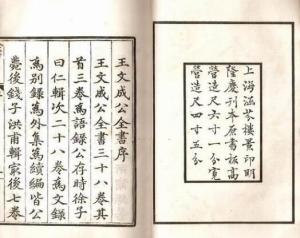 上海涵芬樓景印明
隆慶刊本原書板高
營造尺六寸一分寬
營造尺四寸五分
王文成公全書序
王文成公全書三十八卷其
首三卷為語錄公存時徐子
曰仁輯次二十八卷為文錄
為別錄為外集為續編皆公
薨後錢子洪甫輯冣後七卷